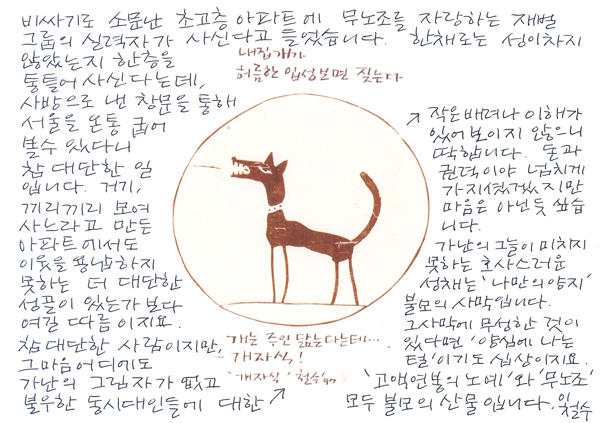 비싸기로 소문난 초고층 아파트에 무노조를 자랑하는 재벌
그룹의 실력자가 사신다고 들었습니다. 한채로는 성이차지
않았는지 한층을
통틀어 사신다는데,
사방으로 낸 창문을 통해
서울을 온통 굽어
볼수 있다니
참 대단한 일
입니다. 거기,
끼리끼리 모여
사느라고 만든
아파트에서도
이웃을 용납하지
못하는 더 대단한
성골이 있는가 보다
여길 따름이지요.
참 대단한 사람이지만,
그마음 어디에도
가난의 그림자가 없고
불우한 동시대인들에 대한
내집개가
허름한 입성보면 짖는다
개는 주인 닮는다는데...
개자식!
'개자식' 철수 97
작은 배려나 이해가
있어 보이지 않으니
딱합니다. 돈과
권력이야 넘치게
가지셨겠지만
마음은 아닌듯 싶습
니다.
가난의 그늘이 미치지
못하는 호사스러운
성채는 '나만의 양지'
불모의 사막입니다.
그사막에 무성한 것이
있다면 '양심에 나는
털'이기도 십상이지요.
'고액연봉의 노예'와 '무노조'
모두 불모의 산물입니다. 철수